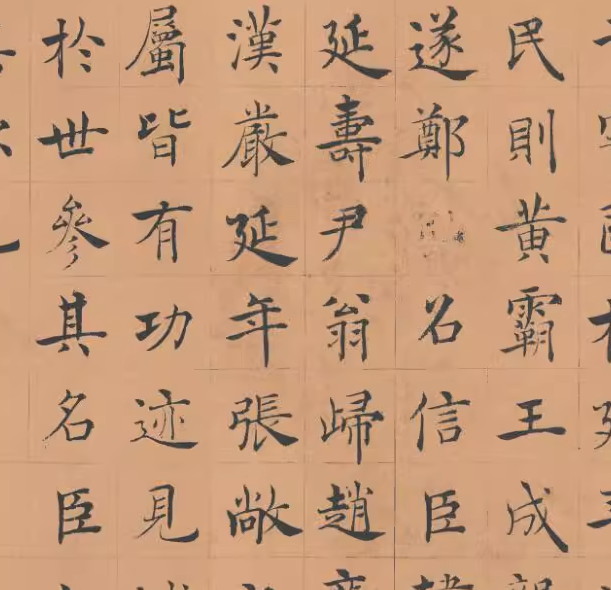 民則黃霸王成
遂鄭召信臣
延壽尹翁歸趙
漢嚴延年張敞
屬皆有功迹見
於世參其名臣